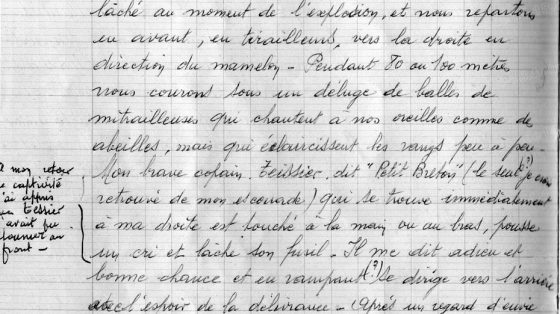 lâché au moment de l'explosion, et nous repartons
en avant, en tirailleurs, vers la droite en
direction du mamelon - Pendant 80 ou 100 mètres
nous courons sous un déluge de balles de
mitrailleuses qui chantent à nos oreilles comme des
abeilles, mais qui éclaircissent les rangs peu à peu -
Mon brave copain Teissier, dit "Petit Breton" (le seul (?) je crois
retrouvé de mon escouade) qui se trouve immédiatement
à ma droite est touché à la main ou au bras, pousse
un cri et lâche son fusil - Il me dit adieu et
bonne chance et en rampant (?) se dirige vers l'arrière
avec l'espoir de la délivrance - (Après un regard d'envie
A mon retour
de captivité
j'ai appris
que Teissier
avait pu
retourner au
front -